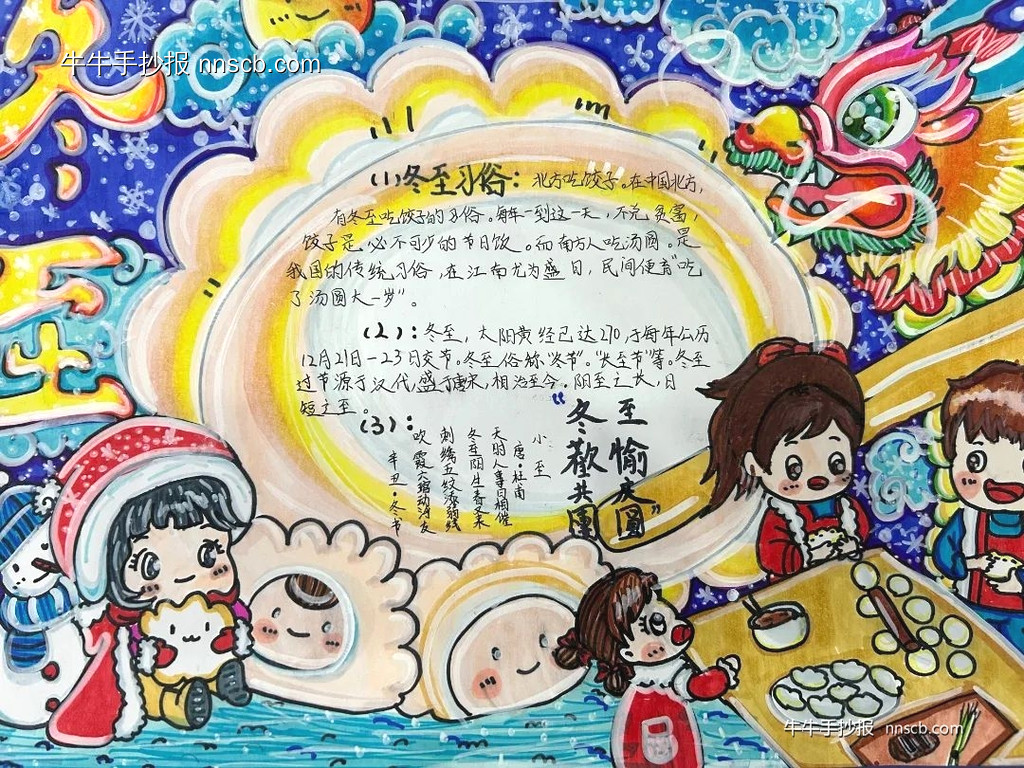 冬至
牛牛手抄报 nnscb.com
(1)冬至习俗：北方吃饺子。在中国北方，
有冬至吃饺子的习俗。每年一到这一天，不论贫富，
饺子是必不可少的节日饭。而南方人吃汤圆。是
我国的传统习俗，在江南尤为盛日，民间便有“吃
了汤圆大一岁”。
(2)：冬至，太阳黄经已达270，于每年公历
12月21日一23日交节。冬至俗称“冬节”。“长至节”等。冬至
过节源于汉代，盛于唐宋，相沿至今。阴至之长，日
短之至。
(3)：
小至
唐·杜甫
天时人事日相催
冬至阳生春又来
刺绣五纹添弱线
吹葭六琯动浮灰
辛丑·冬书
“至愉大圆”
冬歡共團
牛牛手抄报 nnscb.com